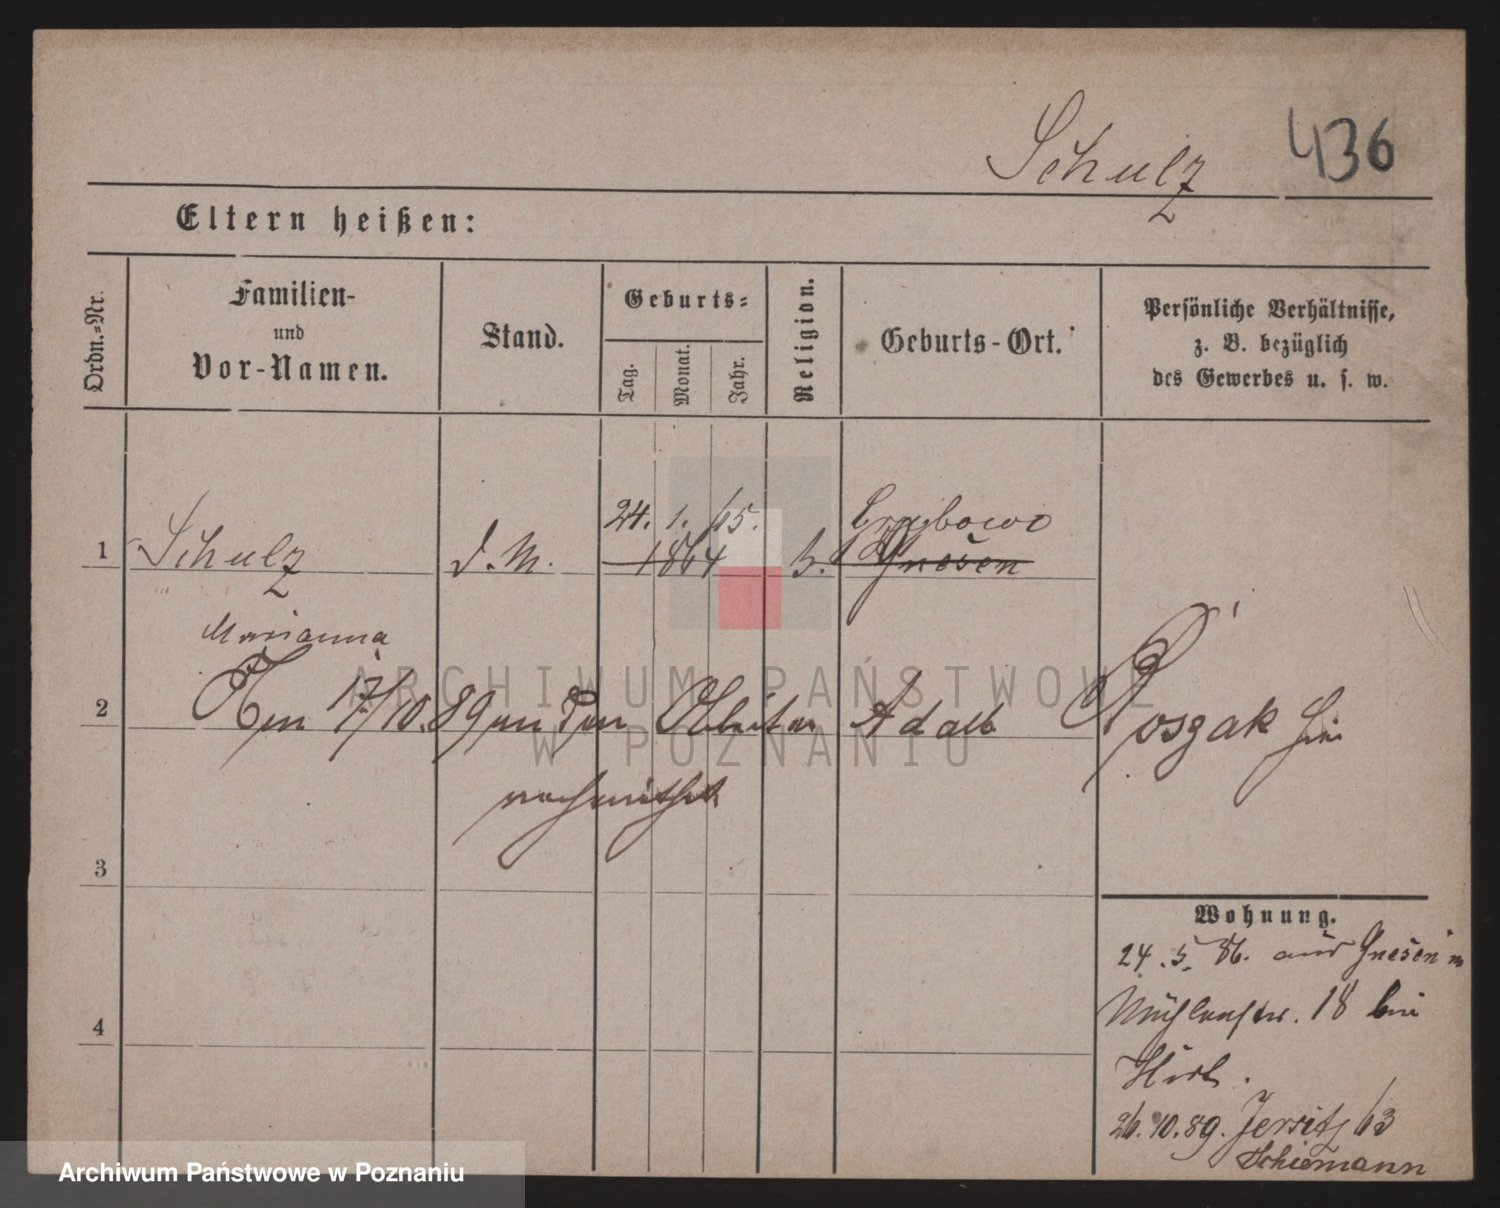 Schulz 436
Eltern heißen:
Ordn.=Nr.
Familien-
und
Vor-Namen.
Stand.
Geburts=
Tag.
Monat.
Jahr.
Religion.
Geburts-Ort.
Persönliche Verhältnisse,
z. B. bezüglich
des Gewerbes u. s. w.
24. 1. 65. Grabowo
1 Schulz d. M. 1864 k. Gnesen
Marianna
2 Am 17/10. 89 mit dem Arbeiter Adalb Poszak hier
verheirathet
3
Wohnung.
24. 5. 86. aus Gnesen n
Mühlenstr. 18 bei
4
26. 10. 89. Jersitz 63
Schiemann
ARCHIWUM PAŃSTWOWE
W POZNANIU
Archiwum Państwowe w Poznaniu